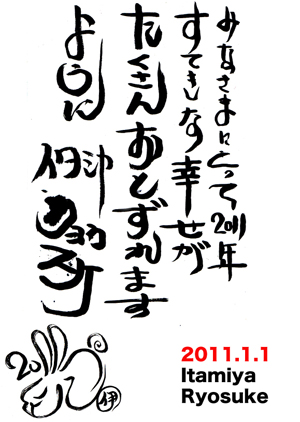 みなさまにとって2011年
すてきな幸せが
たくさんおとずれます
ように
20
伊
2011.1.1
Itamiya
Ryosuke